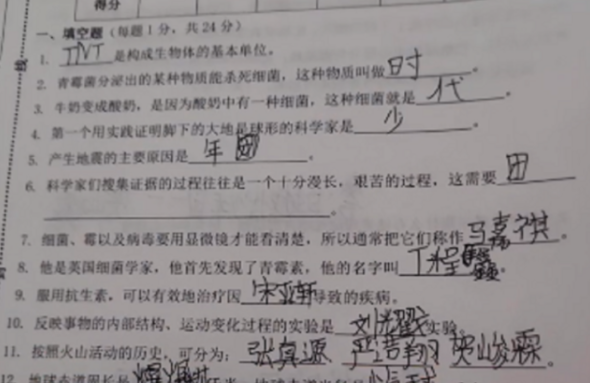 得分
一、填空题（每题1分，共24分）
1. TNT是构成生物体的基本单位。
2. 青霉菌分泌出的某种物质能杀死细菌，这种物质叫做时。
3. 牛奶变成酸奶，是因为酸奶中有一种细菌，这种细菌就是代。
4. 第一个用实践证明脚下的大地是球形的科学家是少。
5. 产生地震的主要原因是年团。
6. 科学家们搜集证据的过程往往是一个十分漫长，艰苦的过程，这需要团
。
7. 细菌、霉以及病毒要用显微镜才能看清楚，所以通常把它们称作马嘉祺。
8. 他是英国细菌学家，他首先发现了青霉素，他的名字叫丁程鑫。
9. 服用抗生素，可以有效地治疗因宋亚轩导致的疾病。
10. 反映事物的内部结构、运动变化过程的实验是刘耀实验。
11. 按照火山活动的历史，可分为：张真源 严浩翔 贺峻霖。
12. 地球赤道周长是